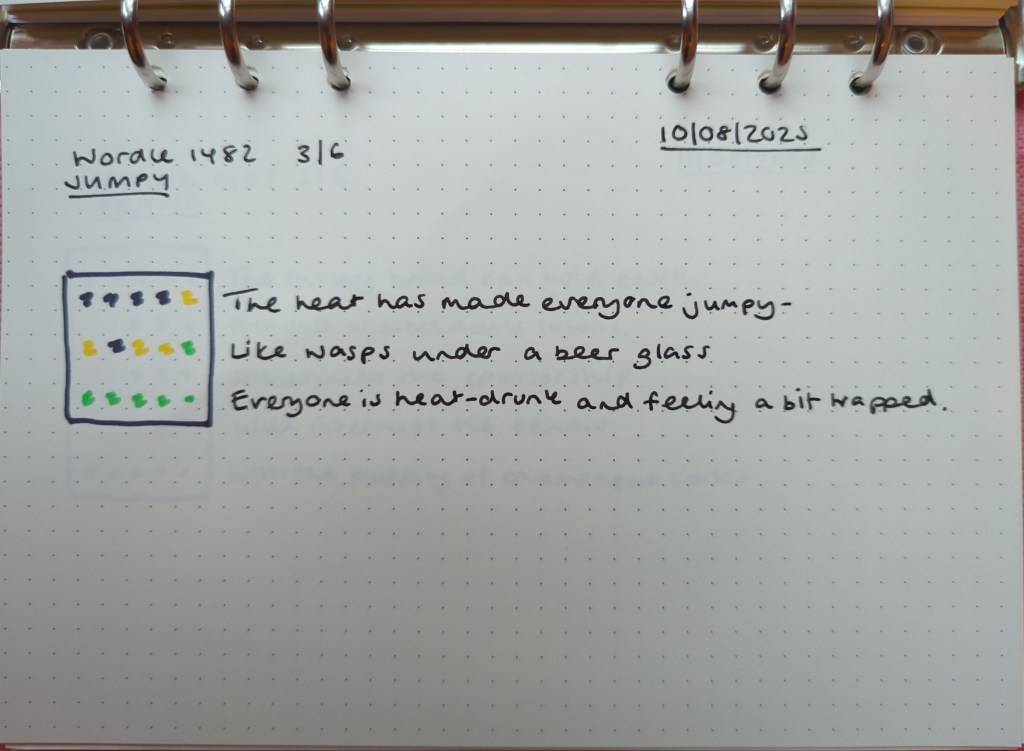 Wordle 1482 3/6
JUMPY
10/08/2025
The heat has made everyone jumpy-
Like wasps under a beer glass
Everyone is heat-drunk and feeling a bit trapped.